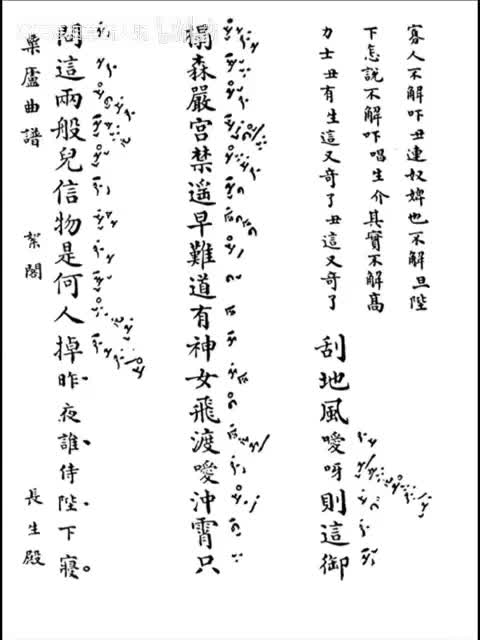 寡人不解吓丑連奴婢也不解旦陛
下怎說不解吓唱生介其實不解高
力士丑有生這又奇了丑這又奇了
刮地風噯呀則這御
榻森嚴宮禁遥早難道有神女飛渡噯沖霄只
問這兩般兒信物是何人掉昨夜誰侍陛下寢。
粟廬曲譜
絮閣
長生殿